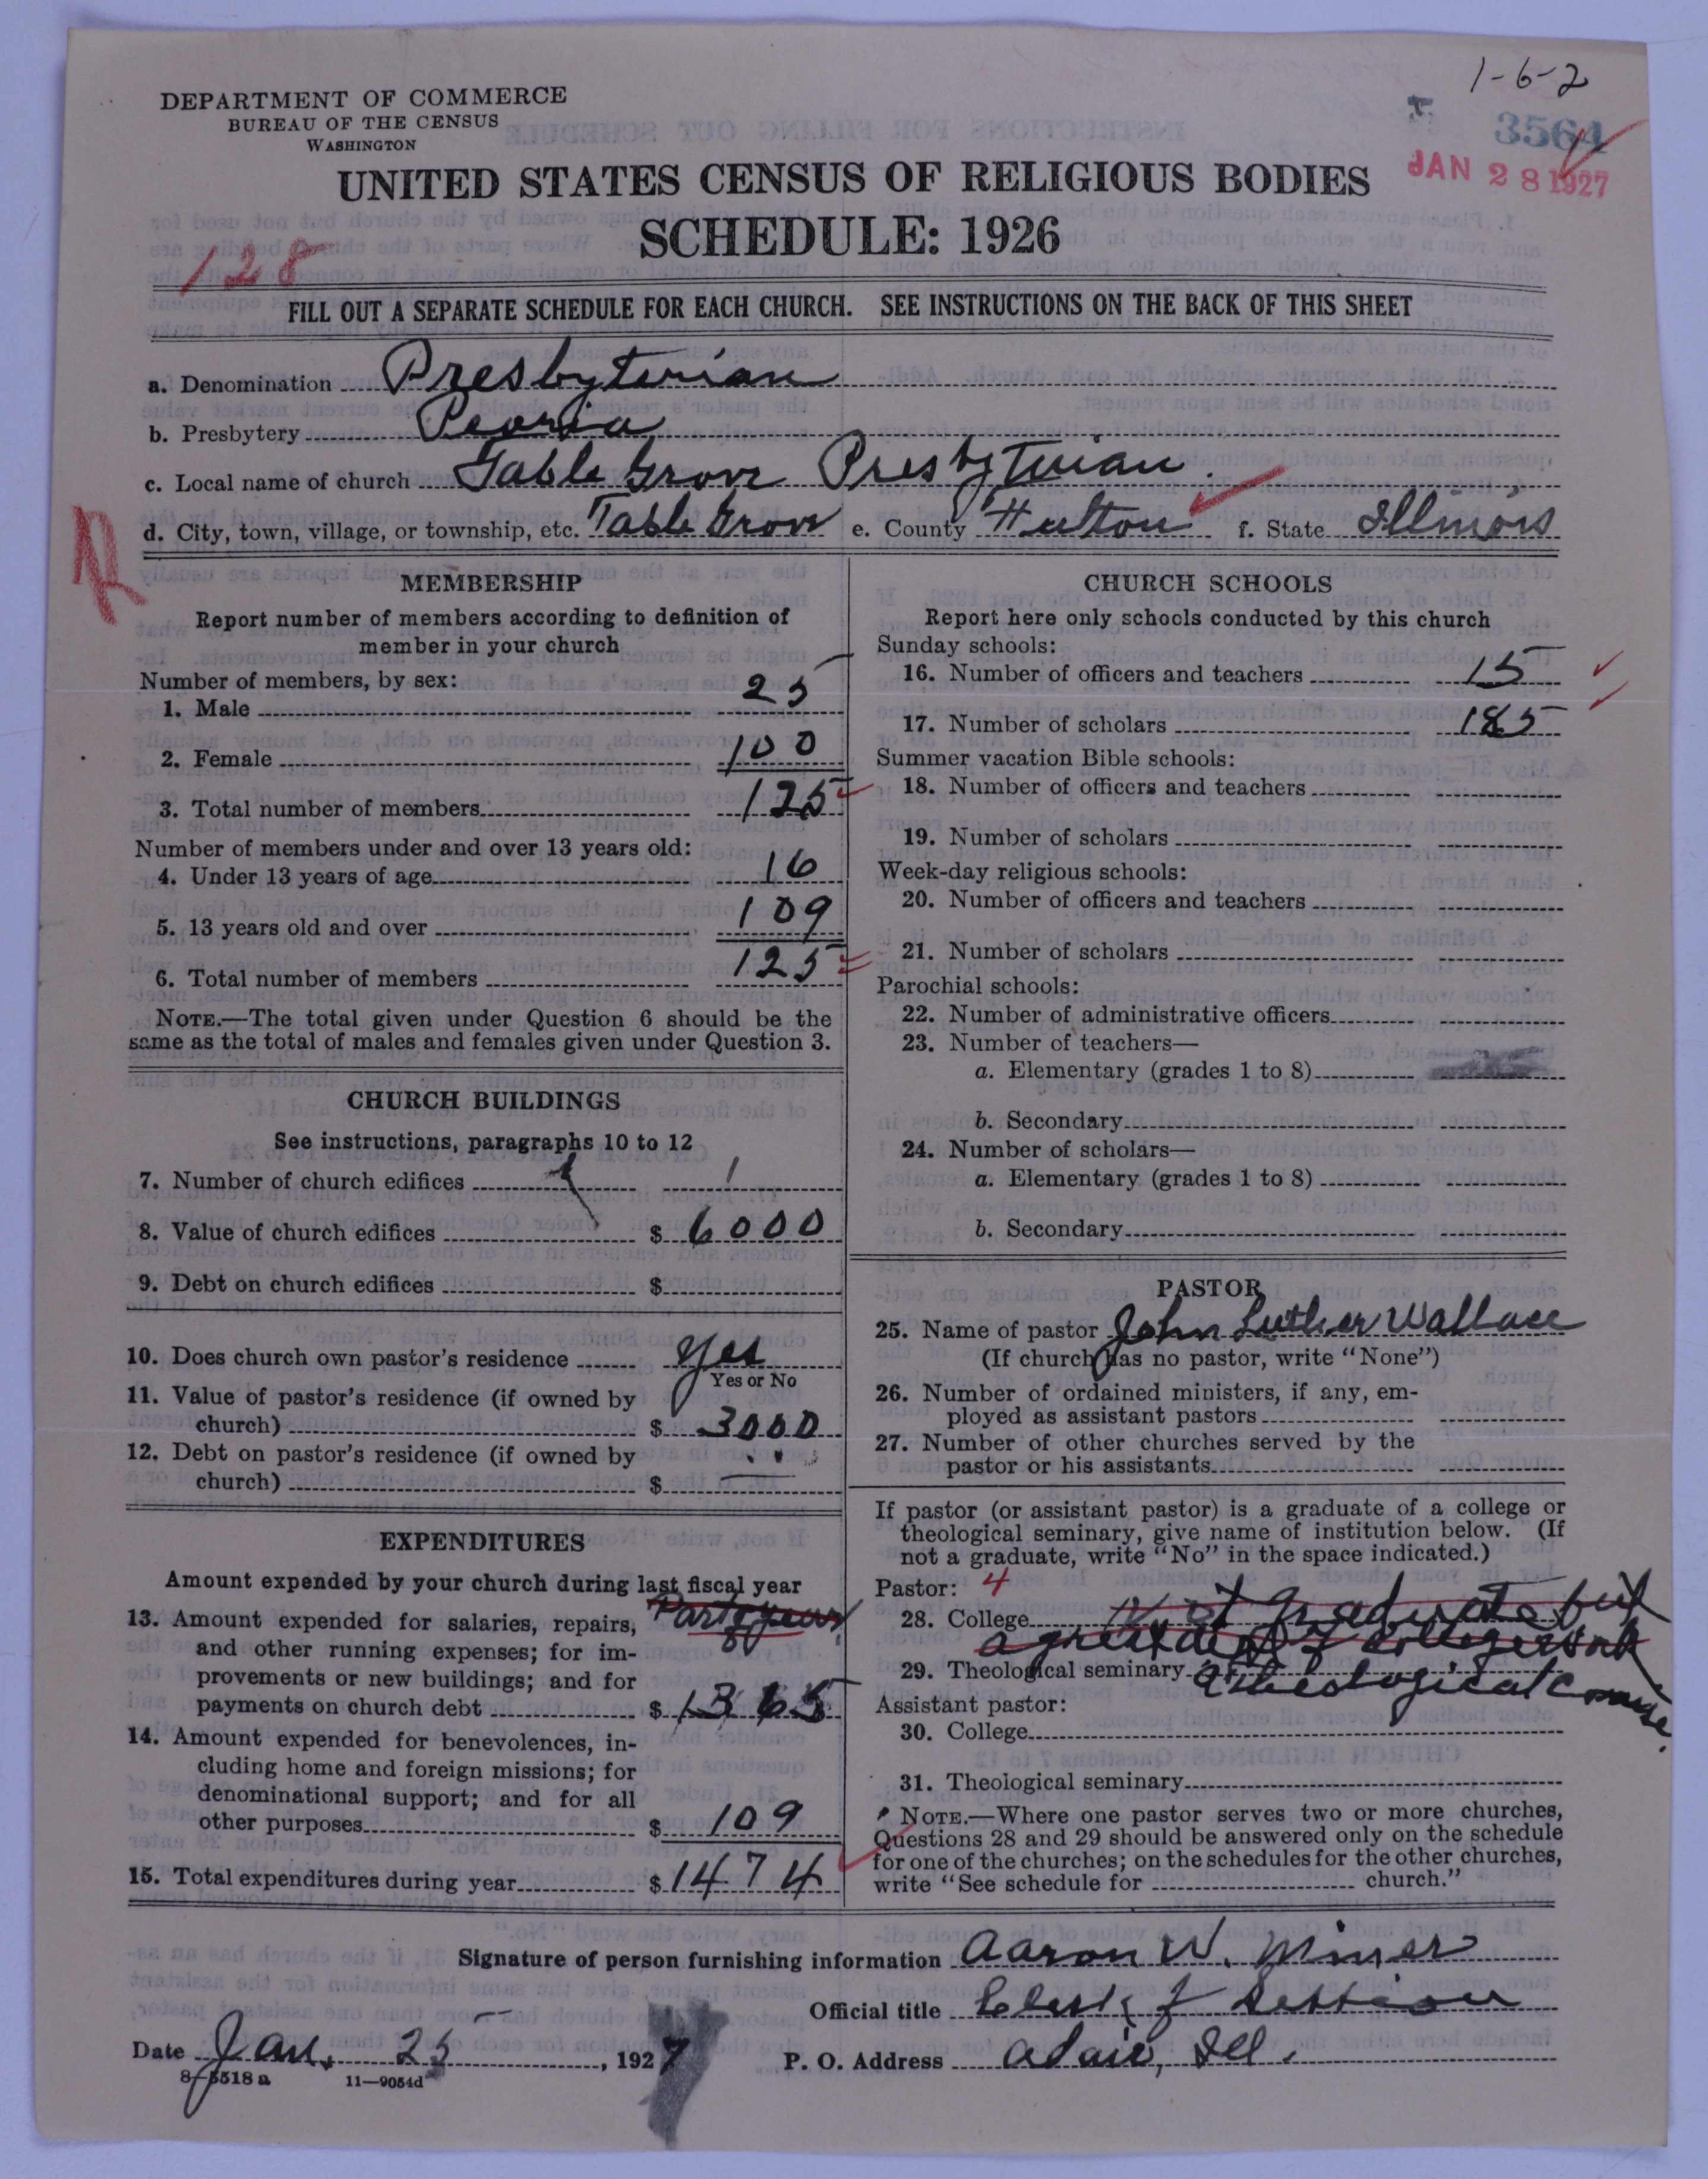 1-6-2
DEPARTMENT OF COMMERCE
BUREAU OF THE CENSUS
WASHINGTON
3564
JAN 28 1927
UNITED STATES CENSUS OF RELIGIOUS BODIES
SCHEDULE: 1926
128
FILL OUT A SEPARATE SCHEDULE FOR EACH CHURCH. SEE INSTRUCTIONS ON THE BACK OF THIS SHEET
a. Denomination Presbyterian
b. Presbytery Peoria
c. Local name of church Table Grove Presbyterian
d. City, town, village, or township, etc. Table Grove e. County Fulton f. State Illinois
MEMBERSHIP
Report number of members according to definition of
member in your church
Number of members, by sex:
1. Male 25
2. Female 100
3. Total number of members 125
Number of members under and over 13 years old:
4. Under 13 years of age 16
5. 13 years old and over 109
6. Total number of members 125
NOTE.—The total given under Question 6 should be the
same as the total of males and females given under Question 3.
CHURCH BUILDINGS
See instructions, paragraphs 10 to 12
7. Number of church edifices 1
8. Value of church edifices $ 6000
9. Debt on church edifices $
10. Does church own pastor's residence Yes
Yes or No
11. Value of pastor's residence (if owned by
church) $ 3000
12. Debt on pastor's residence (if owned by
church) $
EXPENDITURES
Amount expended by your church during last fiscal year
Part of year
13. Amount expended for salaries, repairs,
and other running expenses; for im-
provements or new buildings; and for
payments on church debt $ 1365
14. Amount expended for benevolences, in-
cluding home and foreign missions; for
denominational support; and for all
other purposes $ 109
15. Total expenditures during year $ 1474
CHURCH SCHOOLS
Report here only schools conducted by this church
Sunday schools:
16. Number of officers and teachers 15
17. Number of scholars 185
Summer vacation Bible schools:
18. Number of officers and teachers
19. Number of scholars
Week-day religious schools:
20. Number of officers and teachers
21. Number of scholars
Parochial schools:
22. Number of administrative officers
23. Number of teachers—
a. Elementary (grades 1 to 8)
b. Secondary
24. Number of scholars—
a. Elementary (grades 1 to 8)
b. Secondary
PASTOR
25. Name of pastor John Luther Wallace
(If church has no pastor, write "None")
26. Number of ordained ministers, if any, em-
ployed as assistant pastors
27. Number of other churches served by the
pastor or his assistants
If pastor (or assistant pastor) is a graduate of a college or
theological seminary, give name of institution below. (If
not a graduate, write "No" in the space indicated.)
Pastor: 4
28. College Not graduate but
a great deal of college work
29. Theological seminary a theological course.
Assistant pastor:
30. College
31. Theological seminary
NOTE.—Where one pastor serves two or more churches,
Questions 28 and 29 should be answered only on the schedule
for one of the churches; on the schedules for the other churches,
write "See schedule for church."
Signature of person furnishing information Aaron W. Miner
Official title Clerk of Session
Date Jan. 25, 1927 P. O. Address Adair, Ill.
8—5518 a 11—9054d